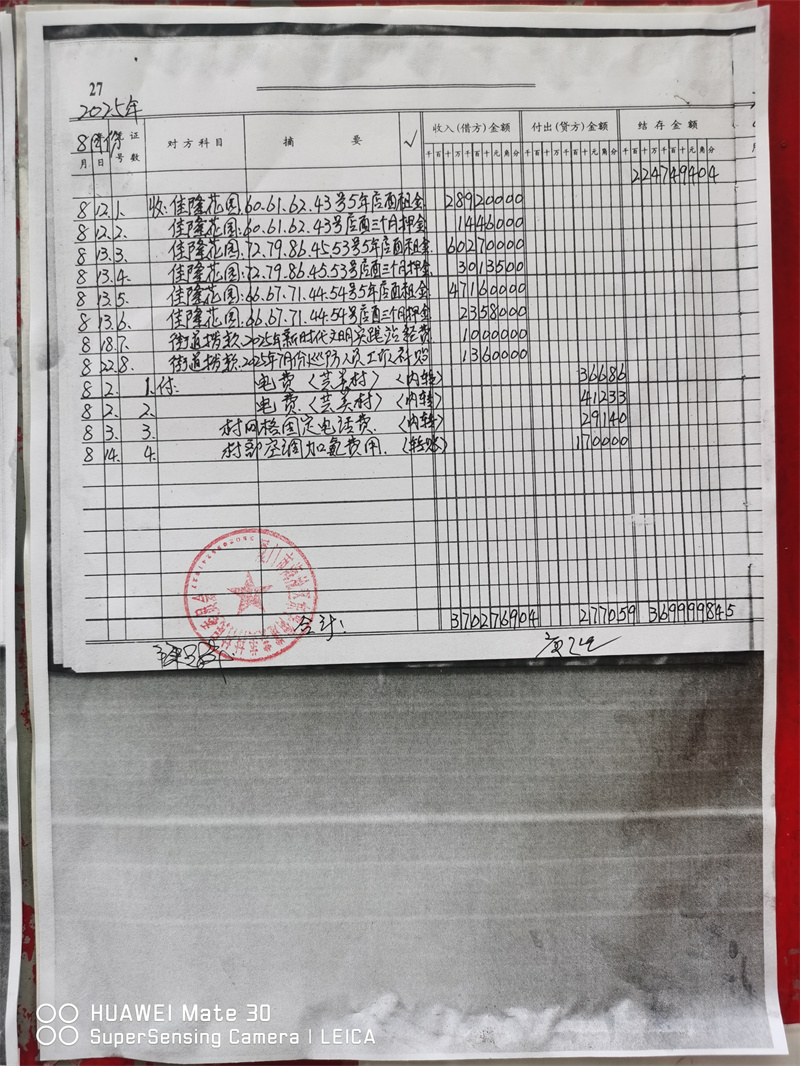 27
2025年
8月 日 凭证号数 对方科目 摘要 √ 收入(借方)金额 付出(贷方)金额 结存金额
千百十万千百十元角分 千百十万千百十元角分 千百十万千百十元角分
224749404
8 12. 1. 收: 佳隆花园:60.61.62.43号5年店面租金 28920000
8 12. 2. 佳隆花园:60.61.62.43号店面三个月押金 1446000
8 13. 3. 佳隆花园:72.79.86.45.53号5年店面租金 60270000
8 13. 4. 佳隆花园:72.79.86.45.53号店面三个月押金 3013500
8 13. 5. 佳隆花园:66.67.71.44.54号5年店面租金 47160000
8 13. 6. 佳隆花园:66.67.71.44.54号店面三个月押金 2358000
8 18. 7. 街道拨款:2025年新时代文明实践站经费 1000000
8 22. 8. 街道拨款:2025年7月份巡防人员工资补贴 1360000
8 2. 1. 付: 电费(芸美村)(内转) 36686
8 2. 2. 电费(芸美村)(内转) 41233
8 3. 3. 村网格固定电话费.(内转) 29140
8 14. 4. 村部空调加氟费用.(转账) 170000
合计: 370276904 277059 369999845
HUAWEI Mate 30
SuperSensing Camera | LEICA